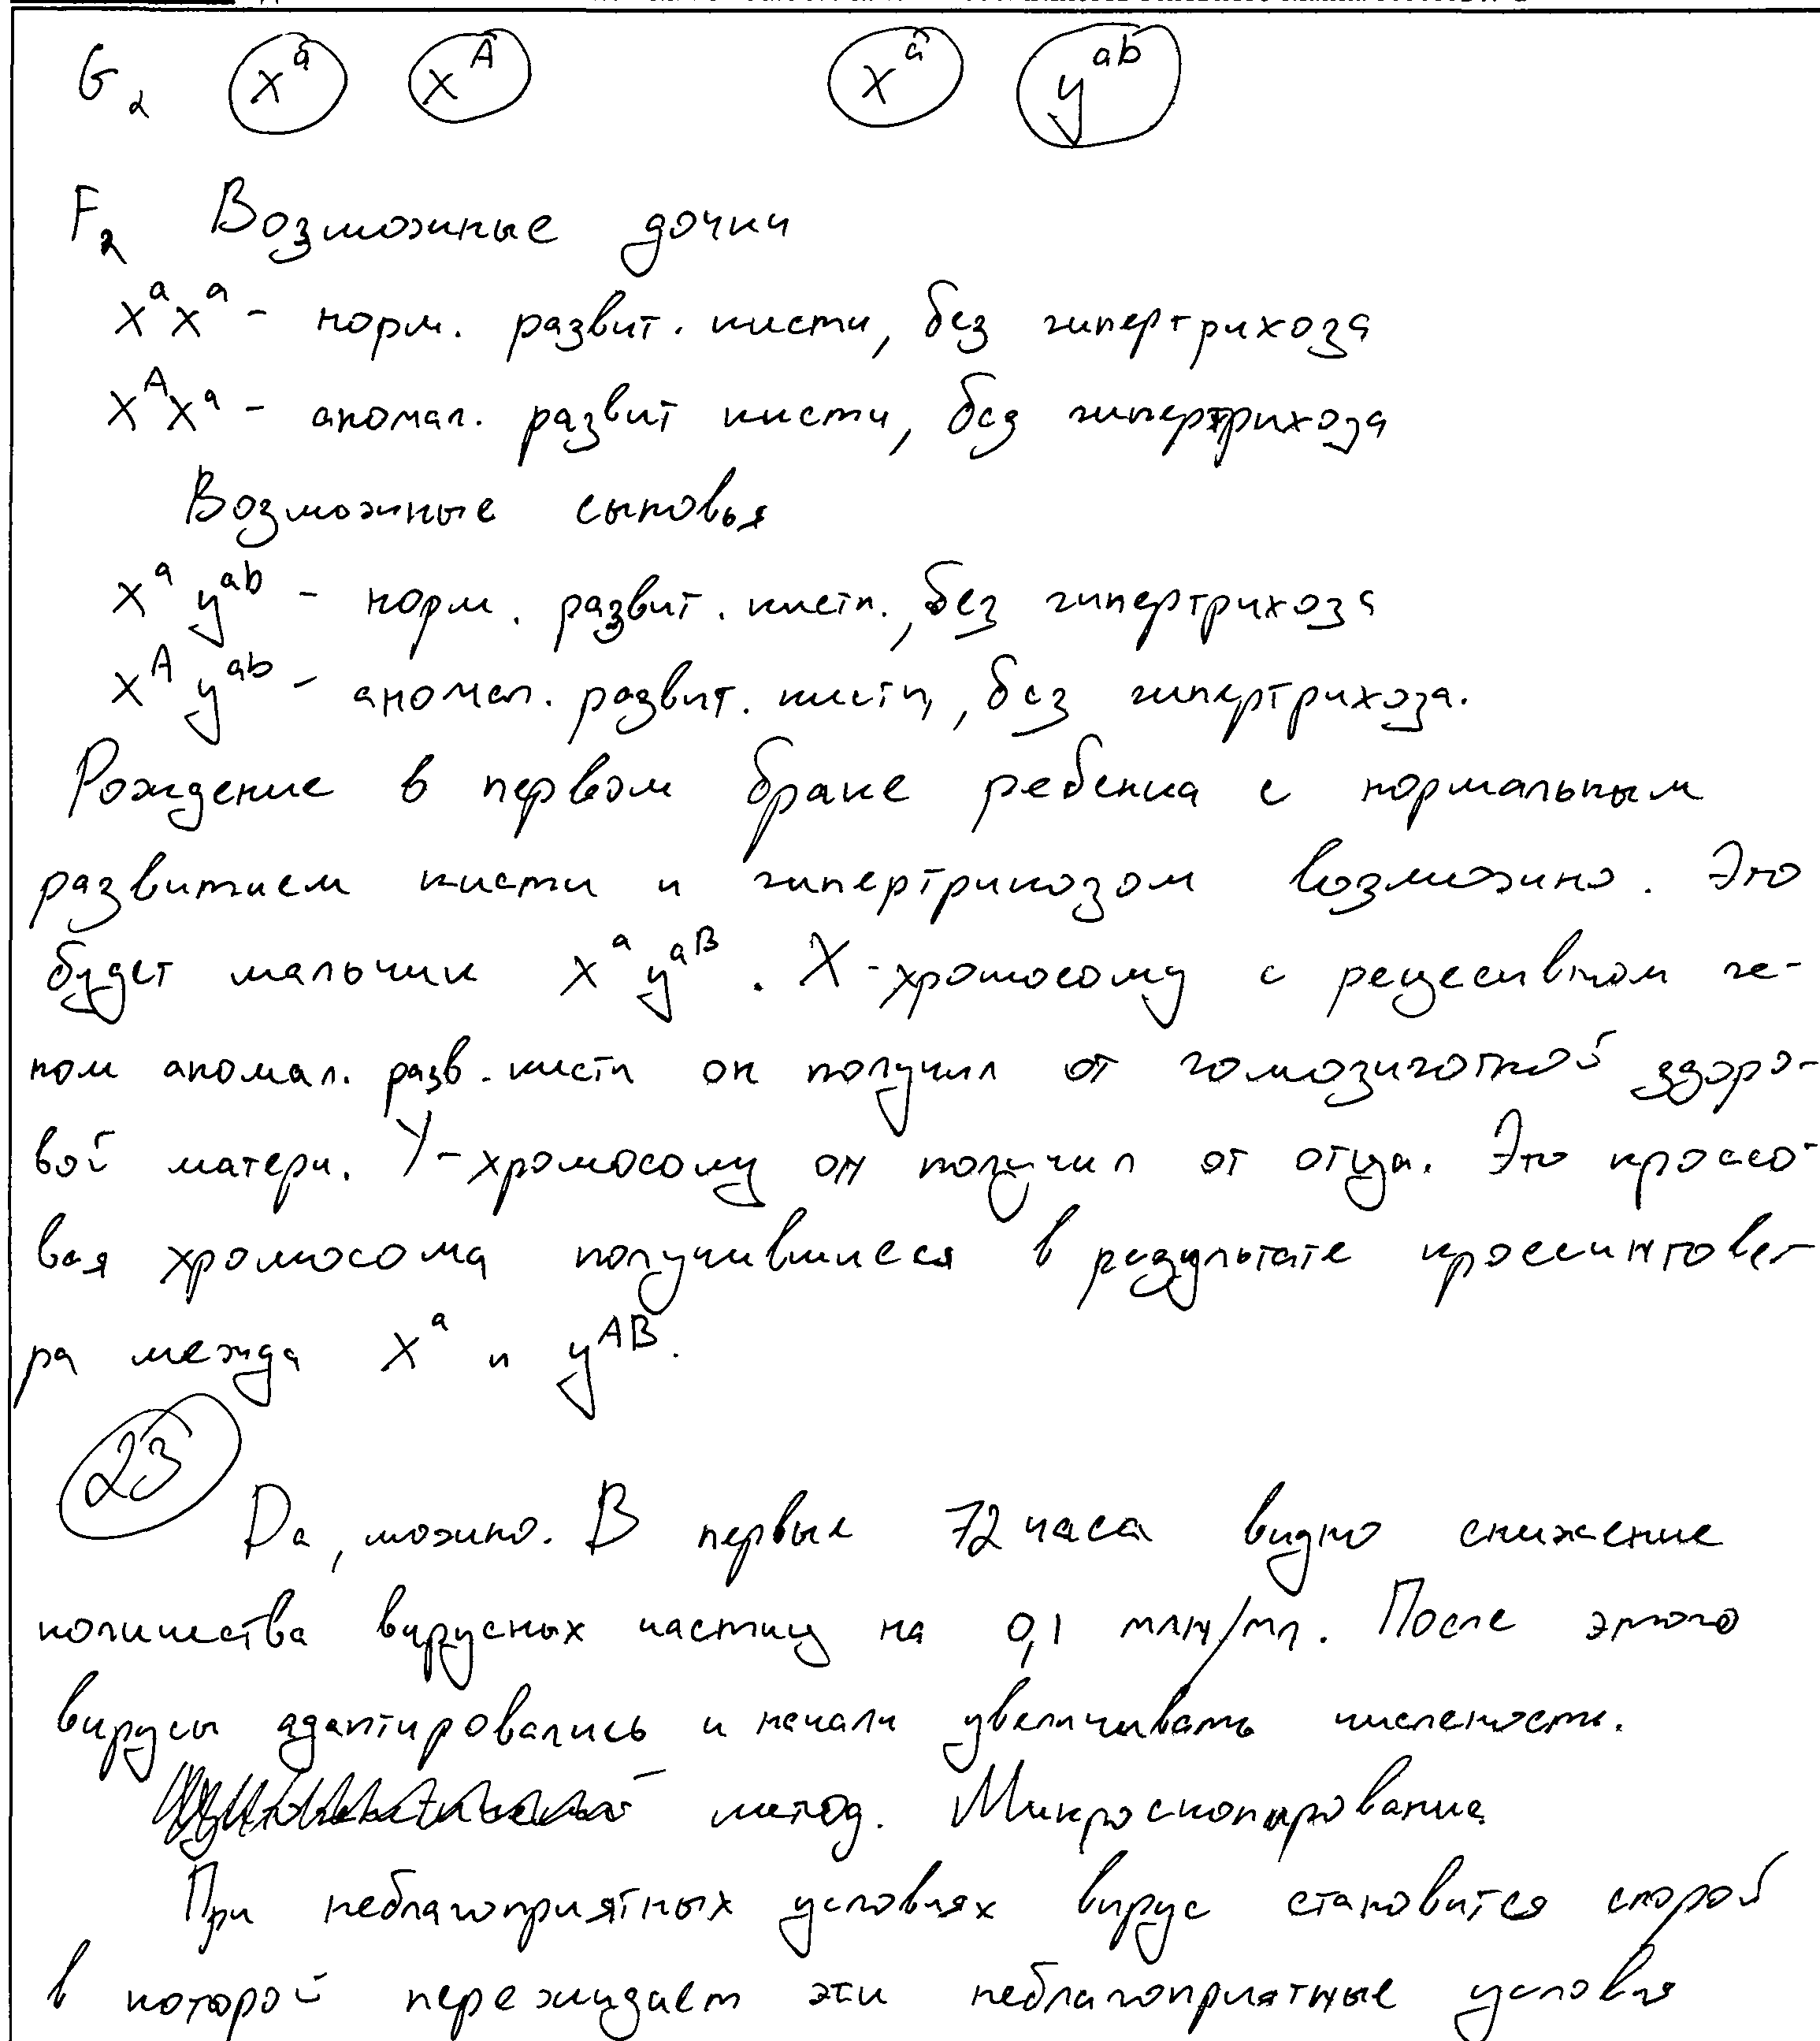 G₂ Xᵃ Xᴬ Xᵃ Yᵃᵇ
F₂ Возможные дочки
XᵃXᵃ - норм. развит. кисти, без гипертрихоза
XᴬXᵃ - аномал. развит кисти, без гипертрихоза
Возможные сыновья
Xᵃ Yᵃᵇ - норм. развит. кисти, без гипертрихоза
Xᴬ Yᵃᵇ - аномал. развит. кисти, без гипертрихоза.
Рождение в первом браке ребенка с нормальным
развитием кисти и гипертрикозом возможно. Это
будет мальчик Xᵃ Yᵃᴮ. X-хромосому с рецесивном ге-
ном аномал. разв. кисти он получил от гомозиготной здоро-
вой матери. Y-хромосому он получил от отца. Это кроссо-
вая хромосома получившиеся в результате кроссинговe-
ра между Xᵃ и Yᴬᴮ.
23
Да, можно. В первые 72 часа видно снижение
количества вирусных частиц на 0,1 млн/мл. После этого
вирусы адаптировались и начали увеличивать численость.
метод. Микроскопирование
При неблагоприятных условиях вирус становится спорой
в которой пережидает эти неблагоприятные условия